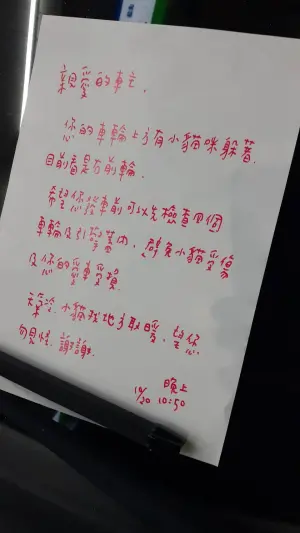 親愛的車主,
您的車輪上方有小貓咪躲著,
目前看是右前輪。
希望您發車前可以先檢查四個
車輪及引擎蓋內, 避免小貓受傷
及您的愛車受損。
天氣冷, 小貓找地方取暖, 望您
勿見怪. 謝謝.
晚上
12/20 10:50